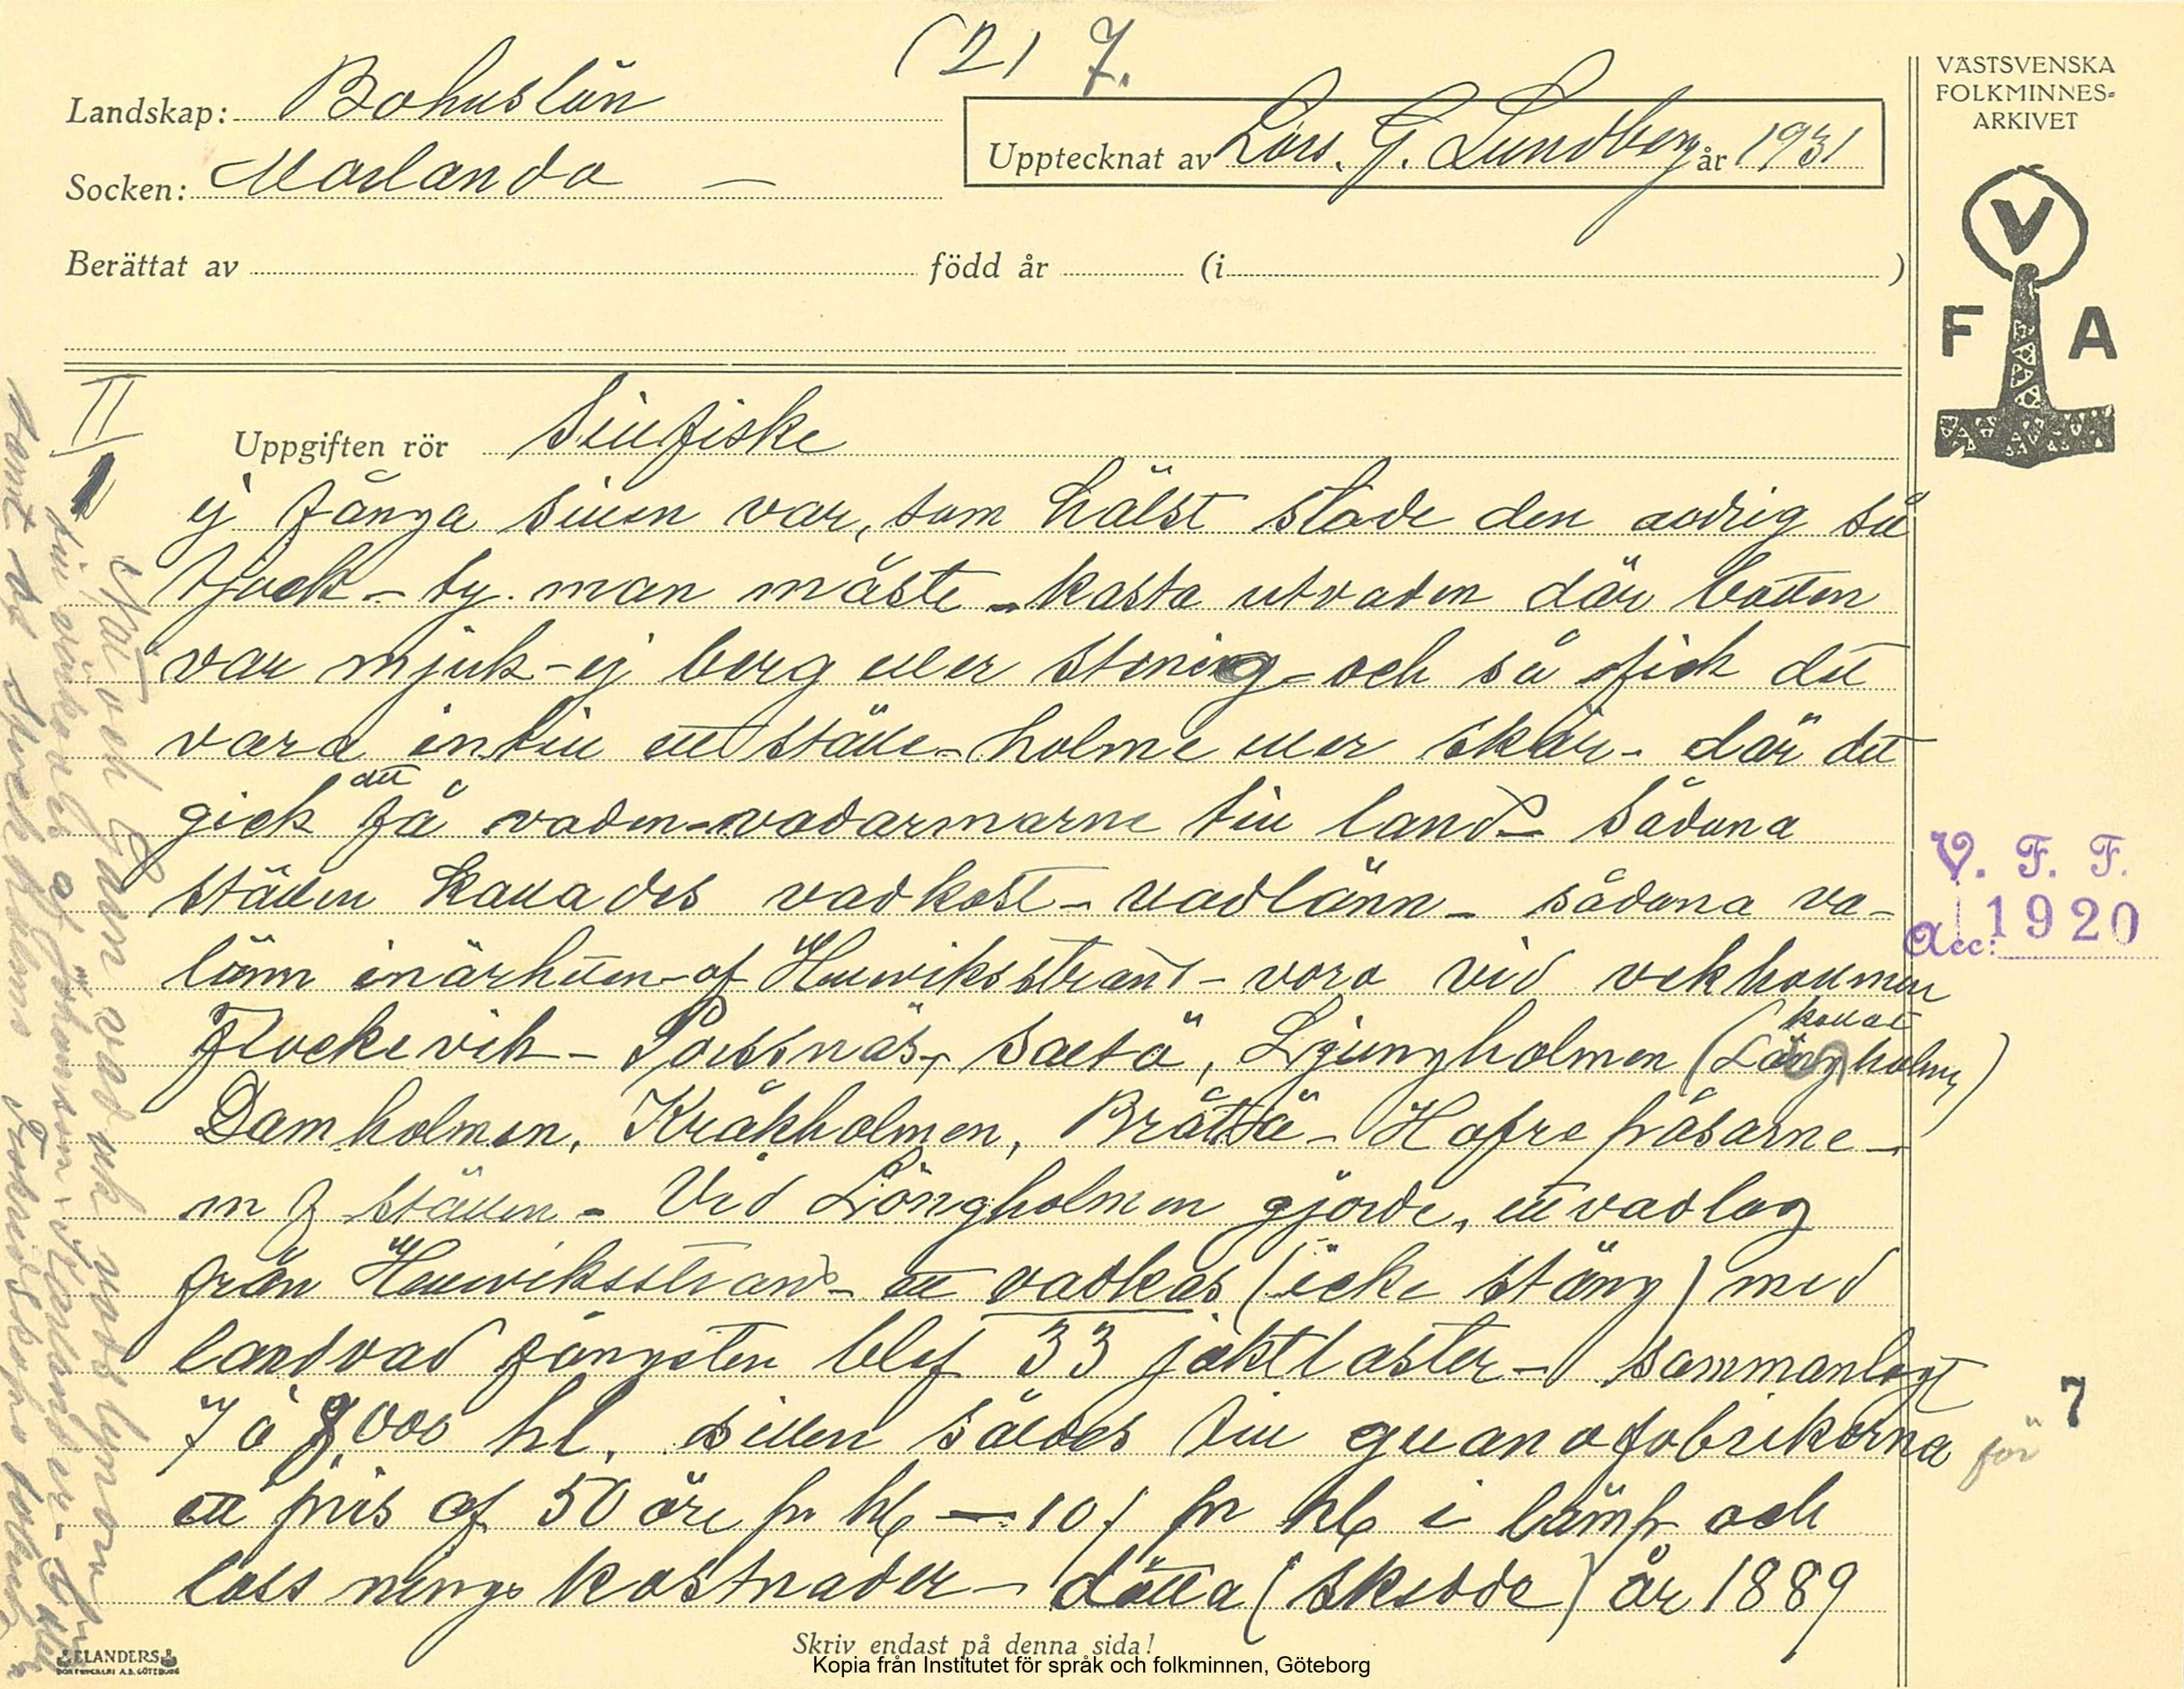 (2) 7.
Landskap: Bohuslän
Socken: Morlanda —
Upptecknat av Lars. G. Lundberg år 1931
Berättat av född år (i )
VÄSTSVENSKA
FOLKMINNES-
ARKIVET
V
F A
II
1
Uppgiften rör Sillfiske
ej fånga sillen var, som hälst stode den aodrig så
tjock - ty. man måste - kasta utvaden där botten
var mjuk - ej berg eller stenig - och så fick det
vara intill ett ställe - holme eller skär - där det
gick att få vaden - vadarmarne till land - sådana
ställen kallades vadkast - vadlänn - sådana va-
länn inärheten af Hellwiksstrand - voro vid vekholmen
Flockevik - Possnäs, Saltö, Ljungholmen (kallat Långholmen)
Damholmen, Kråkholmen, Brattö - Hafrefråsarne -
m fl ställen - Vid Långholmen gjorde, ett vadlag
från Hellwiksstrand - ett vadkas (icke stäng) med
landvad fångsten blef 33 jaktlaster - sammanlagt
7 à 8,000 hl. sillen såldes till guanofabrikerna för
ett pris af 50 öre pr hl — 10/ pr hl i lämp och
lossnings kostnader - detta (skedde) år 1889
V. F. F.
Acc: 1920
7
Nät och Garn vad
ELANDERS
BOKTRYCKERI A.B. GÖTEBORG
Skriv endast på denna sida!
Kopia från Institutet för språk och folkminnen, Göteborg